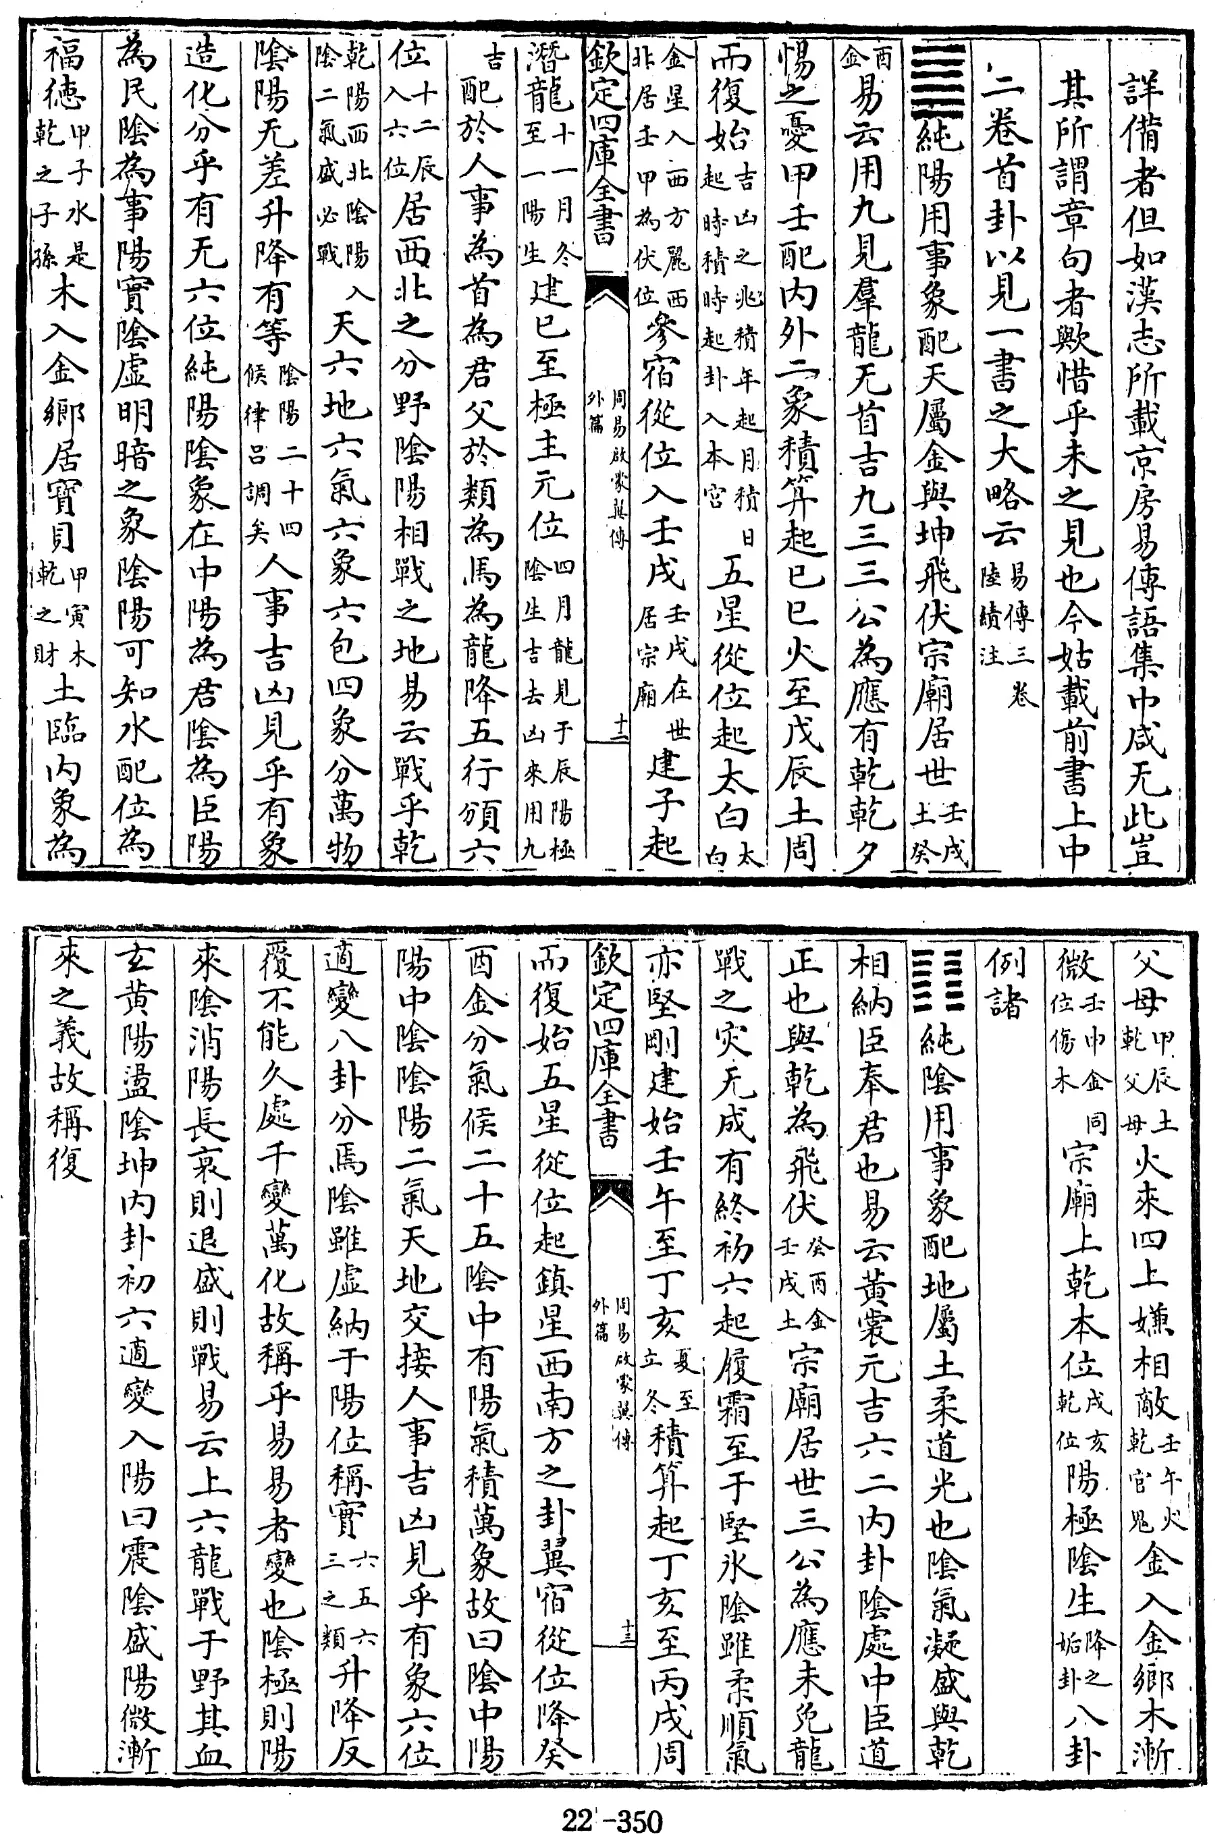 詳備者但如漢志所載京房易傳語集中咸无此豈
其所謂章句者歟惜乎未之見也今姑載前書上中
二卷首卦以見一書之大略云易傳三卷陸績注
䷀純陽用事象配天屬金與坤飛伏宗廟居世壬戌土癸
酉金易云用九見羣龍无首吉九三三公為應有乾乾夕
惕之憂甲壬配内外二象積筭起巳巳火至戊辰土周
而復始吉凶之兆積年起月積日起時積時起卦入本宫五星從位起太白太白
金星入西方麗西非居壬甲為伏位參宿從位入壬戌壬戌在世居宗廟建子起
欽定四庫全書
周易啟蒙翼傳外篇
十二
潛龍十一月冬至一陽生建巳至極主亢位四月龍見于辰陽極陰生吉去凶來用九
吉配於人事為首為君父於類為馬為龍降五行頒六
位十二辰入六位居西北之分野陰陽相戰之地易云戰乎乾
乾陽西北陰陽陰二氣盛必戰入天六地六氣六象六包四象分萬物
陰陽无差升降有等陰陽二十四候律吕調矣人事吉凶見乎有象
造化分乎有无六位純陽陰象在中陽為君陰為臣陽
為民陰為事陽實陰虚明暗之象陰陽可知水配位為
福徳甲子水是乾之子孫木入金鄉居寳貝甲寅木乾之財土臨内象為
父母甲辰土乾父母火來四上嫌相敵壬午火乾官鬼金入金鄉木漸
微壬申金同位傷木宗廟上乾本位戌亥乾位陽極陰生降之姤卦八卦
例諸
䷁純陰用事象配地屬土柔道光也陰氣凝盛與乾
相納臣奉君也易云黄裳元吉六二内卦陰處中臣道
正也與乾為飛伏癸酉金壬戌土宗廟居世三公為應未免龍
戰之灾无成有終初六起履霜至于堅氷陰雖柔順氣
亦堅剛建始壬午至丁亥夏至立冬積筭起丁亥至丙戌周
欽定四庫全書
周易啟蒙翼傳外篇
十三
而復始五星從位起鎮星西南方之卦翼宿從位降癸
酉金分氣候二十五陰中有陽氣積萬象故曰陰中陽
陽中陰陰陽二氣天地交接人事吉凶見乎有象六位
適變八卦分焉陰雖虚納于陽位稱實六五六三之類升降反
覆不能久處千變萬化故稱乎易易者變也陰極則陽
來陰消陽長衰則退盛則戰易云上六龍戰于野其血
玄黄陽盪陰坤内卦初六適變入陽曰震陰盛陽微漸
來之義故稱復
22-350